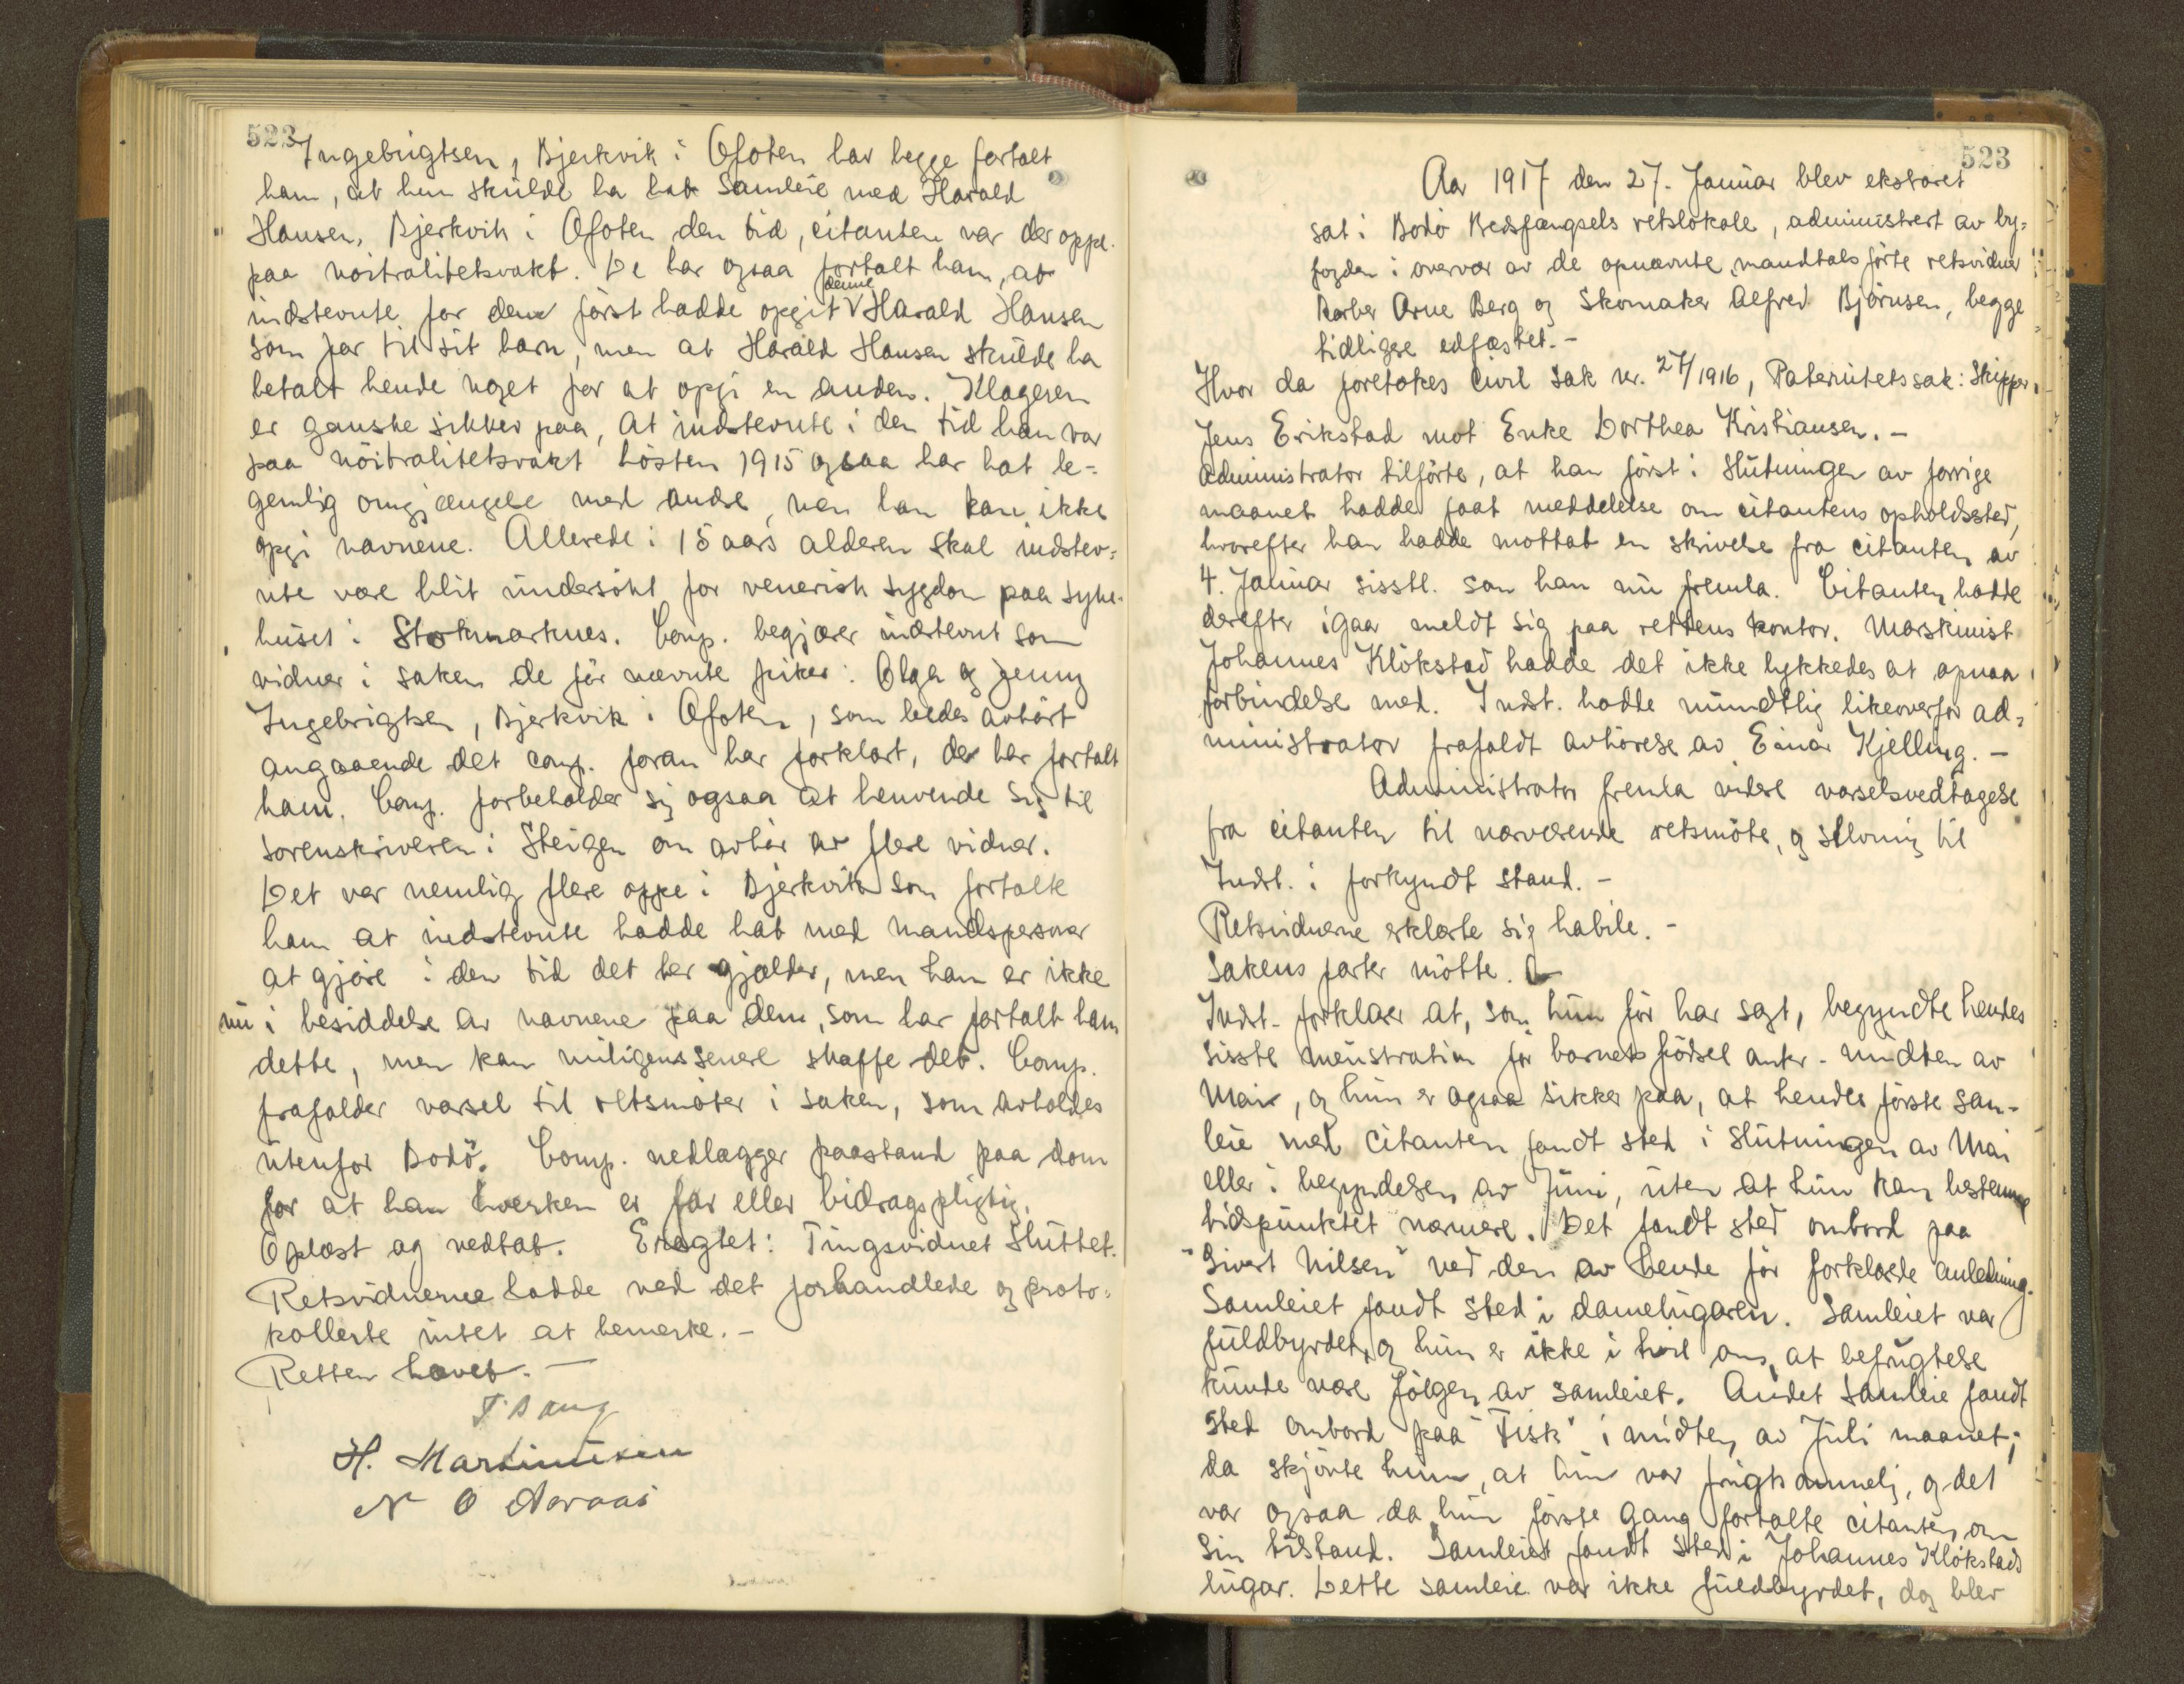 522
Ingebrigtsen, Bjerkvik i Ofoten har begge fortalt
ham, at hun skulde ha hat samleie med Harald
Hansen, Bjerkvik i Ofoten den tid, citanten var der oppe
paa nöitralitetsvakt. De har ogsaa fortalt ham, at
indstevnte for dem först hadde opgit denne Harald Hansen
som far til sit barn, men at Harald Hansen skulde ha
betalt hende noget for at opgi en anden. Klageren
er ganske sikker paa, at indstevnte i den tid han var
paa nöitralitetsvakt hösten 1915 ogsaa har hat le=
gemlig omgjængelse med andre, men han kan ikke
opgi navnene. Allerede i 15 aars alderen skal indstev=
nte være blit undersökt for venerisk sygdom paa syke-
huset i Stokmarknes. Comp. begjærer indstevnt som
vidner i saken de för nævnte piker: Olga og Jenny
Ingebrigtsen, Bjerkvik i Ofoten, som bedes avhört
angaaende det comp. foran har forklart, de har fortalt
ham. Comp. forbeholder sig ogsaa at henvende sig til
sorenskriveren i Steigen om avhör av flere vidner.
Det var nemlig flere oppe i Bjerkvik som fortalte
ham at indstevnte hadde hat med mandspersoner
at gjöre i den tid det her gjælder, men han er ikke
nu i besiddelse av navnene paa dem, som har fortalt ham
dette, men kan muligens senere skaffe det. Comp.
frafalder varsel til retsmöter i saken, som avholdes
utenfor Bodö. Comp. nedlægger paastand paa dom
for at han hverken er far eller bidragspligtig.
Oplæst og vedtat. Eragtet: Tingsvidnet sluttet.
Retsvidnerne hadde ved det forhandlede og proto=
kollerte intet at bemerke.-
Retten hævet.-
H. Martinusen
N O
523
Aar 1917 den 27. Januar blev ekstraret
sat i Bodö Kredsfængsels retslokale, administrert av by=
fogden i overvær av de opnævnte mandtalsförte retsvidner
Barber Arne Berg og Skomaker Alfred Björnsen, begge
tidligere edfæstet.-
Hvor da foretokes Civil sak nr. 27/1916, Paternitetssak: Skipper
Jens Erikstad mot Enke Dorthea Kristiansen.-
Administrator tilförte, at han först i slutningen av forrige
maanet hadde faat meddelelse om citantens opholdssted,
hvorefter han hadde mottat en skrivelse fra citanten av
4. Januar sisstl. som han nu fremla. Citanten hadde
derefter igaar meldt sig paa rettens kontor. Maskinist
Johannes Klökstad hadde det ikke lykkedes at opnaa
forbindelse med. Indst. hadde mundtlig likeoverfor ad=
ministrator frafaldt avhörelse av Einar Kjelling.-
Administrator fremla videre varselsvedtagelse
fra citanten til nærværende retsmöte, og stevning til
Indst. i forkyndt stand.-
Retsvidnerne erklærte sig habile.-
Sakens parter mötte.
Indst. forklarer at, som hun för har sagt, begyndte hendes
sisste menstration för barnets födsel ankr. midten av
Mai, og hun er ogsaa sikker paa, at hendes förste sam-
leie med citanten fandt sted i slutningen av Mai
eller i begyndelsen av Juni, uten at hun kan bestemme
tidspunktet nærmere. Det fandt sted ombord paa
"Sivert Nilsen" ved den av hende för forklarede anledning.
Samleiet fandt sted i damelugaren. Samleiet var
fuldbyrdet, og hun er ikke i tvil om, at befrugtelse
kunde være fölgen av samleiet. Andet samleie fandt
sted ombord paa "Fisk" i midten av Juli maanet;
da skjönte hun, at hun var frugtsommelig, og det
var ogsaa da hun förste gang fortalte citanten om
sin tilstand. Samleiet fandt sted i Johannes Klökstads
lugar. Dette samleie var ikke fuldbyrdet, dog blev